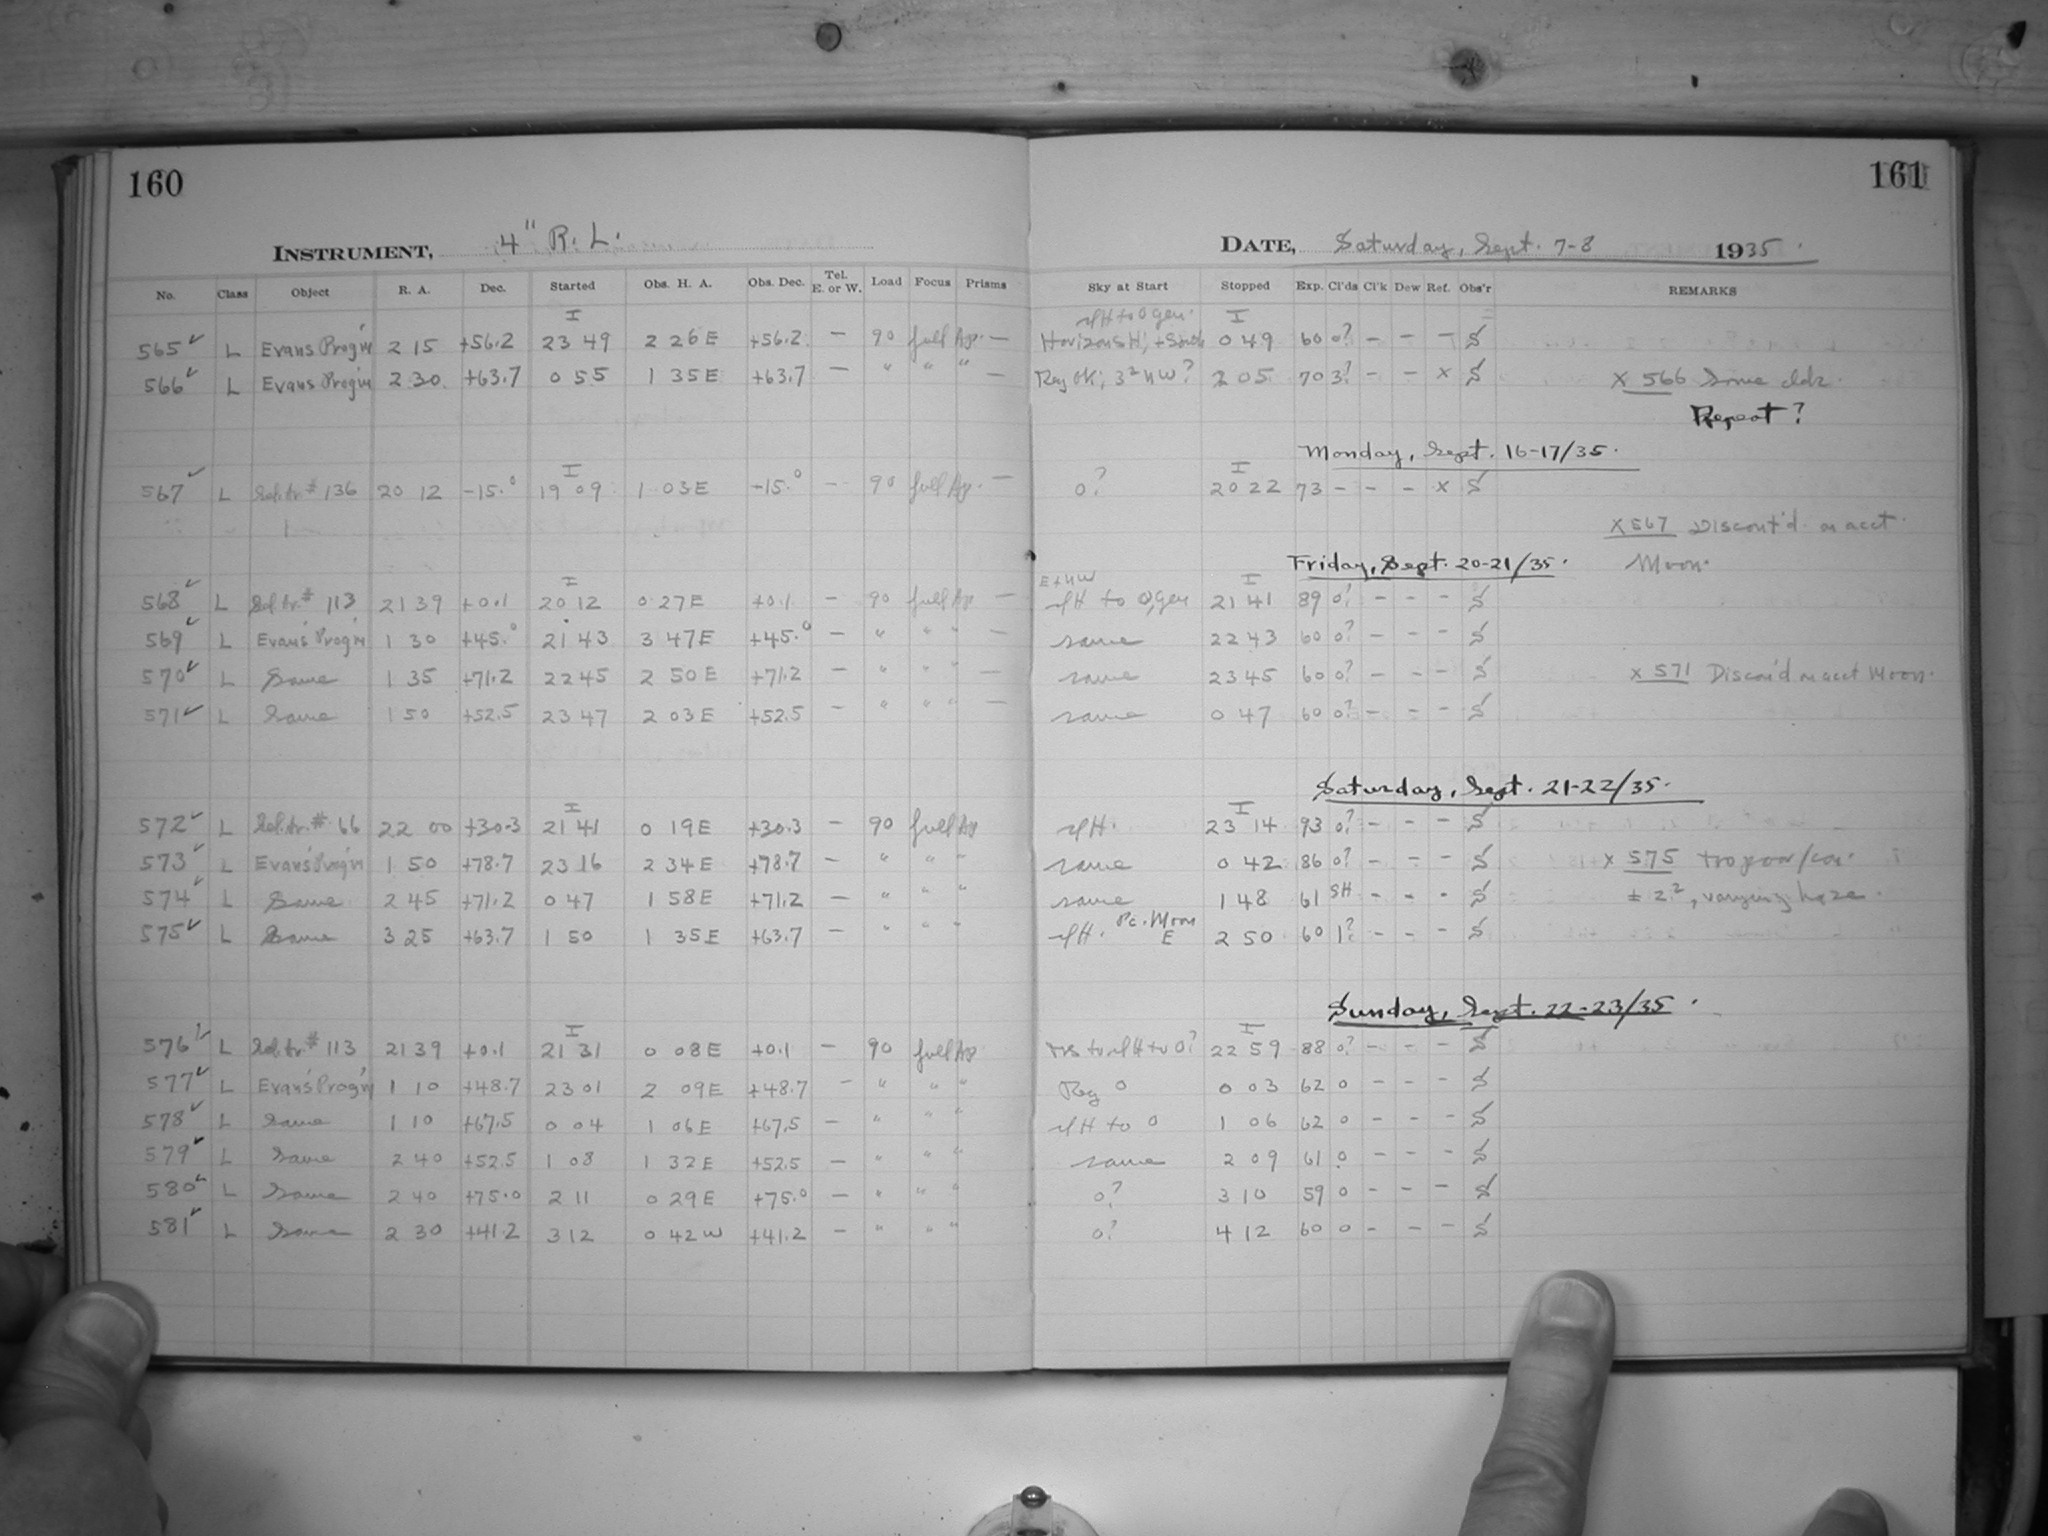 160
161
INSTRUMENT, 4" R. L.
DATE, Saturday, Sept. 7-8 1935.
No. Class Object R. A. Dec. Started Obs. H. A. Obs. Dec. Tel. E. or W. Load Focus Prisms Sky at Start Stopped Exp. Cl'ds Cl'k Dew Ref. Obs'r REMARKS
I slH to 0 gen. I
565 ✓ L Evans' Prog'm 2 15 +56.2 23 49 2 26 E +56.2 — 90 full Ap. — Horizons H, + South 0 49 60 0? – – – S
566 ✓ L Evans' Prog'm 2 30 +63.7 0 55 1 35 E +63.7 — " " " — Reg ok; 3² NW? 2 05 70 3? – – x S x 566 Some clds.
Repeat?
Monday, Sept. 16-17/35.
I I
567 ✓ L # 136 20 12 -15.° 19 09 1 03 E -15.° – 90 full Ap. — 0? 20 22 73 – – – x S
x 567 Discont'd on acct.
Moon.
Friday, Sept. 20-21/35.
I E + NW I
568 ✓ L # 113 21 39 +0.1 20 12 0 27 E +0.1 – 90 full Ap — slH to 0, gen 21 41 89 0? – – – S
569 ✓ L Evans' Prog'm 1 30 +45.° 21 43 3 47 E +45.° – " " " — same 22 43 60 0? – – – S
570 ✓ L Same 1 35 +71.2 22 45 2 50 E +71.2 – " " " — same 23 45 60 0? – – – S x 571 Discon'd on acct Moon.
571 ✓ L Same 1 50 +52.5 23 47 2 03 E +52.5 – " " " — same 0 47 60 0? – – – S
Saturday, Sept. 21-22/35.
I I
572 ✓ L # 66 22 00 +30.3 21 41 0 19 E +30.3 – 90 full Ap slH. 23 14 93 0? – – – S
573 ✓ L Evans' Prog'm 1 50 +78.7 23 16 2 34 E +78.7 – " " " same 0 42 86 0? – – – S x 575
574 ✓ L Same 2 45 +71.2 0 47 1 58 E +71.2 – " " " same 1 48 61 SH – – – S ± 2.², varying haze.
575 ✓ L Same 3 25 +63.7 1 50 1 35 E +63.7 – " " " slH. Pc. Moon E 2 50 60 1? – – – S
Sunday, Sept. 22-23/35.
I I
576 ✓ L # 113 21 39 +0.1 21 31 0 08 E +0.1 – 90 full Ap to slH to 0? 22 59 88 0? – – – S
577 ✓ L Evans' Prog'm 1 10 +48.7 23 01 2 09 E +48.7 – " " " Reg 0 0 03 62 0 – – – S
578 ✓ L Same 1 10 +67.5 0 04 1 06 E +67.5 – " " " slH to 0 1 06 62 0 – – – S
579 ✓ L Same 2 40 +52.5 1 08 1 32 E +52.5 – " " " same 2 09 61 0 – – – S
580 ✓ L Same 2 40 +75.0 2 11 0 29 E +75.0 – " " " 0? 3 10 59 0 – – – S
581 ✓ L Same 2 30 +41.2 3 12 0 42 W +41.2 – " " " 0? 4 12 60 0 – – – S